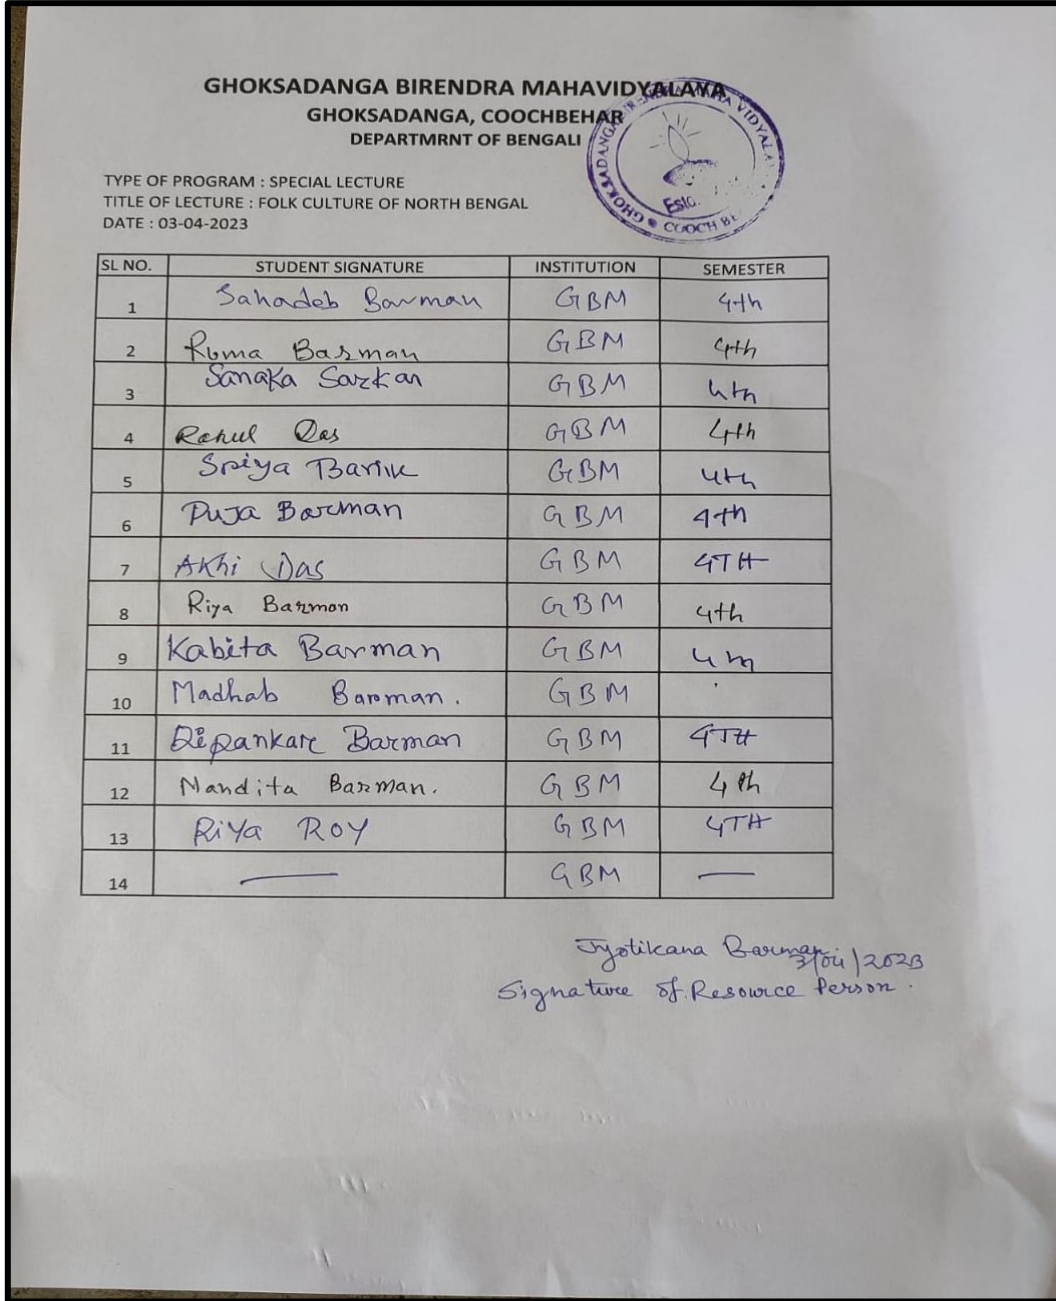 GHOKSADANGA BIRENDRA MAHAVIDYALAYA
GHOKSADANGA, COOCHBEHAR
DEPARTMRNT OF BENGALI
GHOKSADANGA BIRENDRA MAHA VIDYALAYA
Estd.
COOCH BE
TYPE OF PROGRAM : SPECIAL LECTURE
TITLE OF LECTURE : FOLK CULTURE OF NORTH BENGAL
DATE : 03-04-2023
SL NO. STUDENT SIGNATURE INSTITUTION SEMESTER
1 Sahadeb Barman GBM 4th
2 Ruma Barman GBM 4th
3 Sanaka Sarkar GBM 4th
4 Rahul Das GBM 4th
5 Sriya Barik GBM 4th
6 Puja Barman GBM 4th
7 Akhi Das GBM 4TH
8 Riya Barmon GBM 4th
9 Kabita Barman GBM 4th
10 Madhab Barman. GBM
11 Dipankar Barman GBM 4TH
12 Nandita Barman. GBM 4th
13 RiYa ROY GBM 4TH
14 — GBM —
Jyotikana Barman 3/04/2023
Signature of Resource Person.